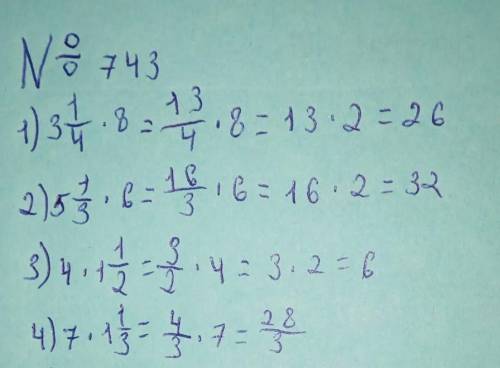 № 743
1) 3 1/4 · 8 = 13/4 · 8 = 13 · 2 = 26
2) 5 1/3 · 6 = 16/3 · 6 = 16 · 2 = 32
3) 4 · 1 1/2 = 3/2 · 4 = 3 · 2 = 6
4) 7 · 1 1/3 = 4/3 · 7 = 28/3